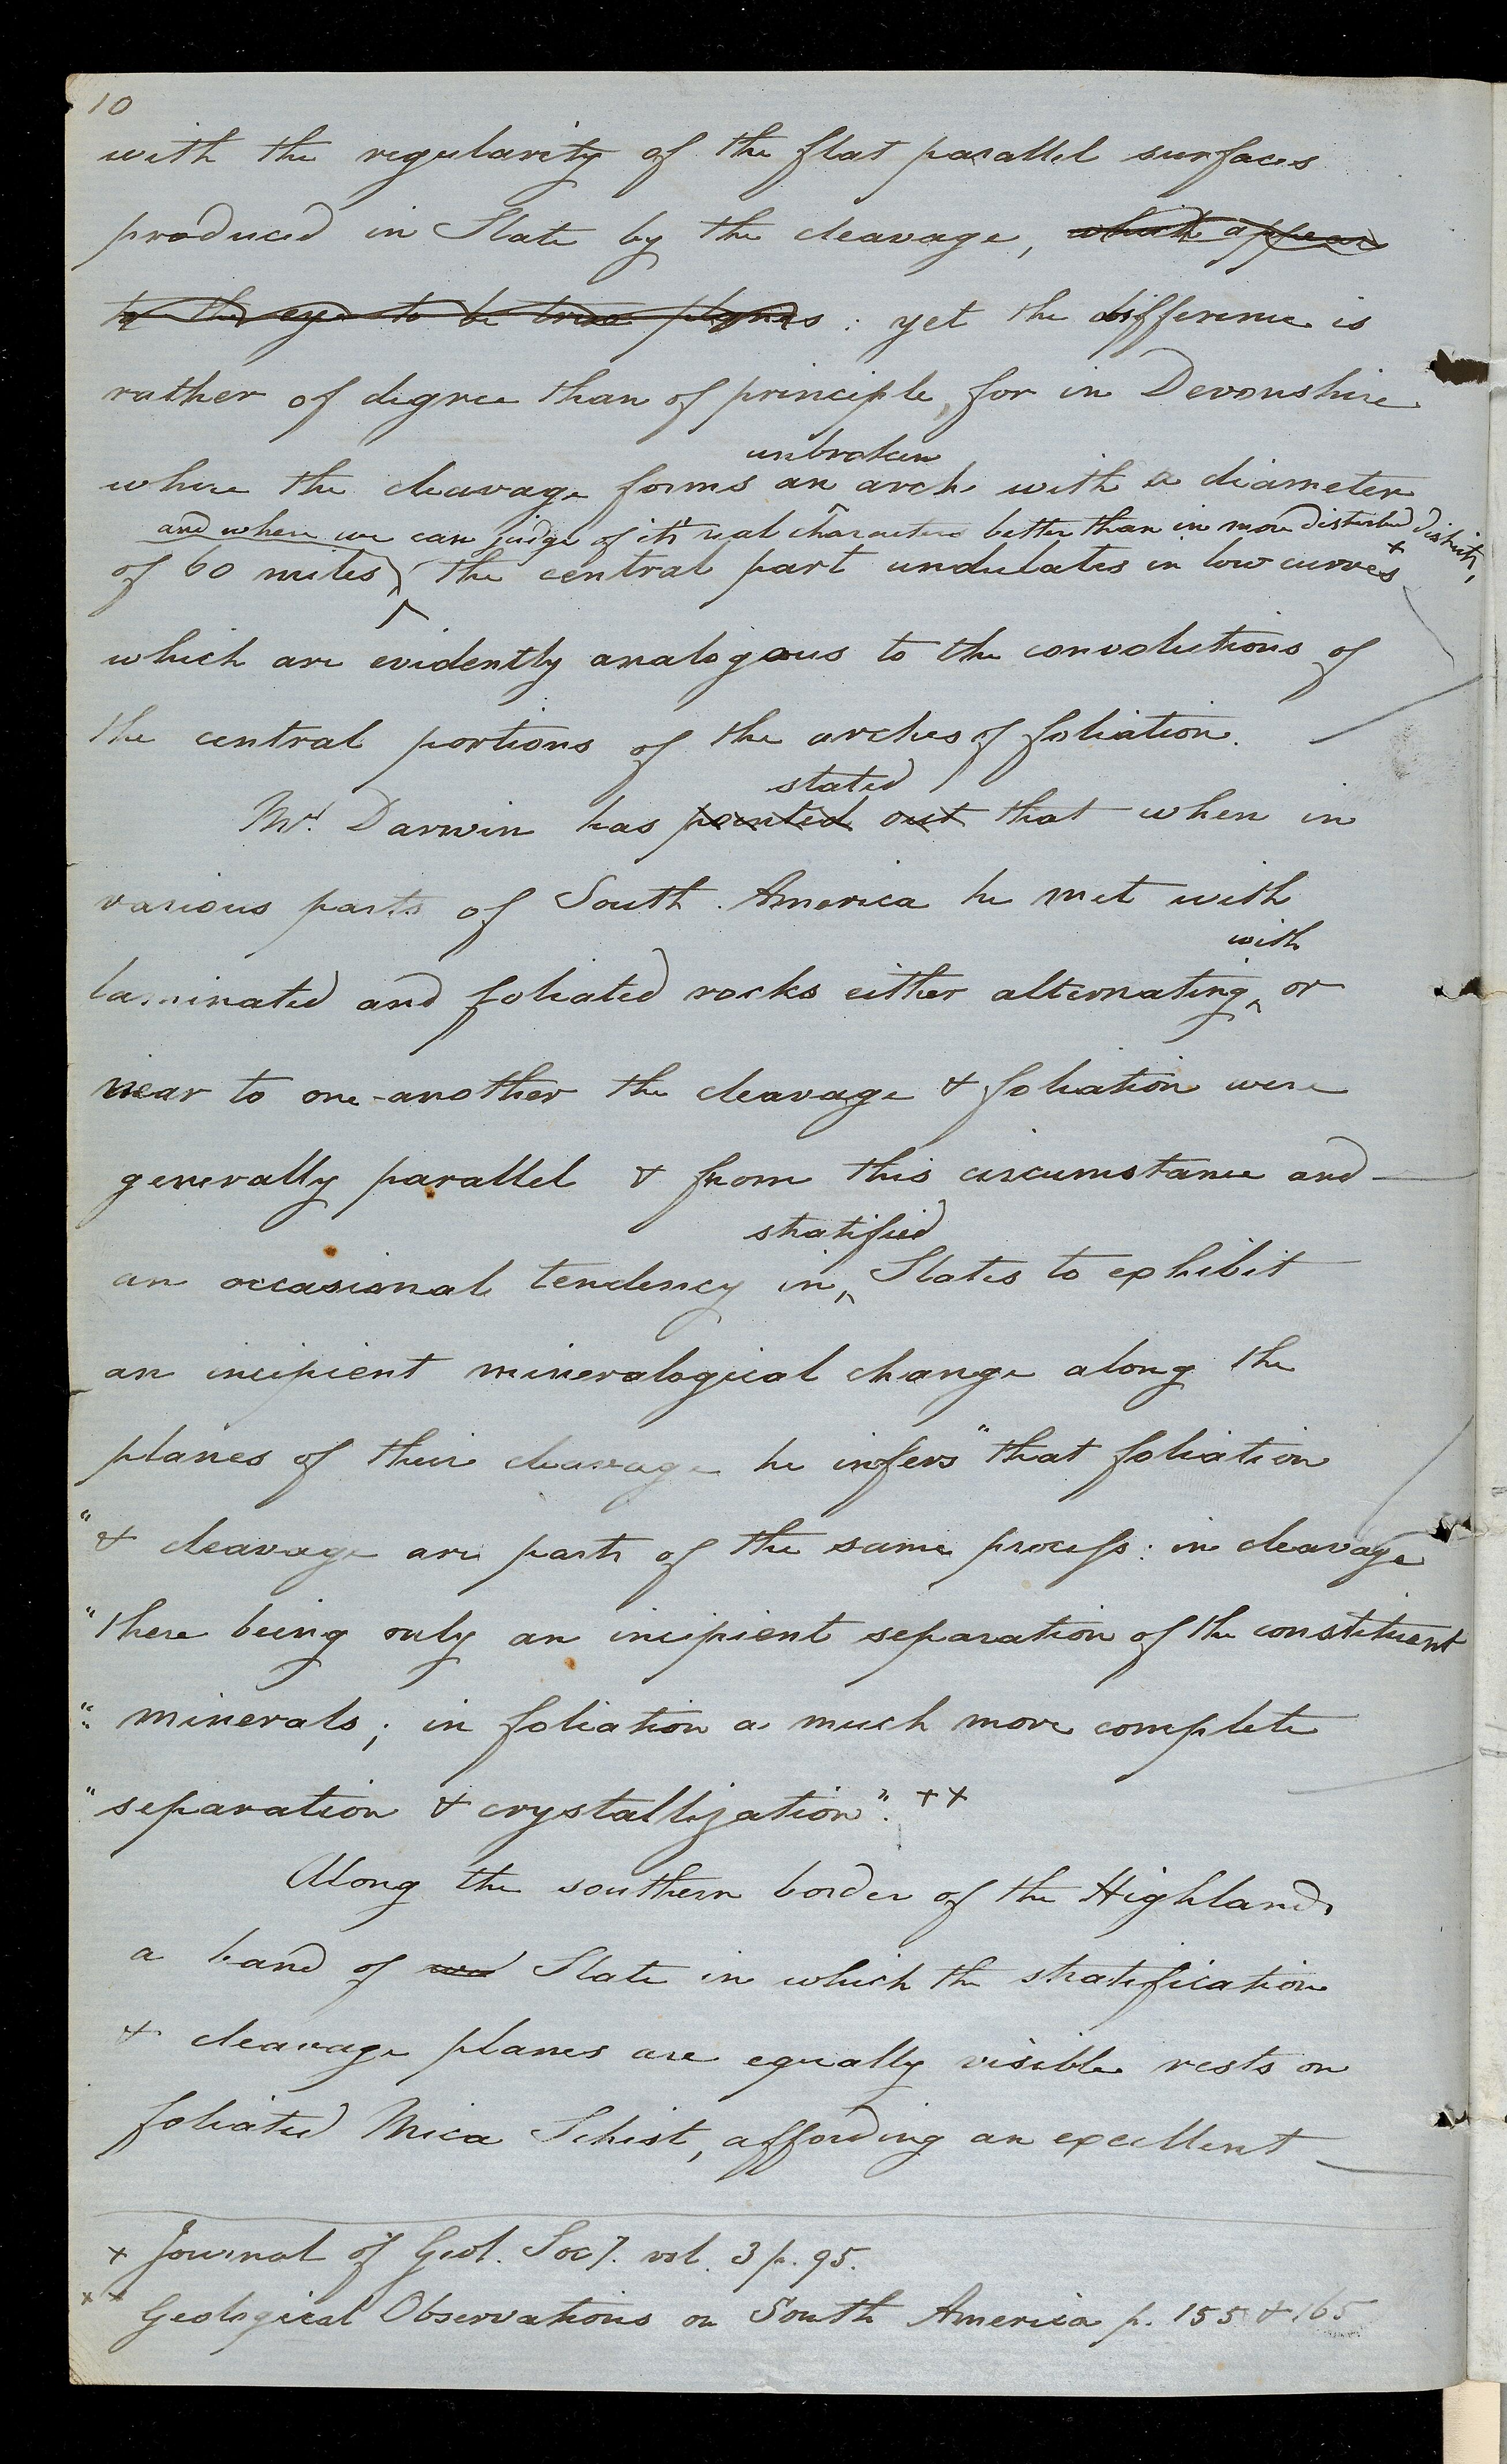 10
with the regularity of the flat parallel surfaces
produced in Slate by the cleavage, which appear
to the eye to be true planes : yet the difference is
rather of degree than of principle, for in Devonshire
unbroken
where the cleavage forms an arch with a diameter
and where we can judge of its real characters better than in more disturbed districts,
of 60 miles, the central part undulates in low curves +
which are evidently analogous to the convolutions of
the central portions of the arches of foliation.
stated
Mr. Darwin has pointed out that when in
various parts of South America he met with
with
laminated and foliated rocks either alternating ‸ or
near to one-another the cleavage & foliation were
generally parallel & from this circumstance and
stratified
an occasional tendency in ‸ Slates to exhibit
an incipient mineralogical change along the
planes of their cleavage he infers "that foliation
"& cleavage are parts of the same process: in cleavage
"there being only an incipient separation of the constituent
"minerals; in foliation a much more complete
"separation & crystallization". ++
Along the southern border of the Highlands
a band of Slate in which the stratification
& cleavage planes are equally visible rests on
foliated Mica Schist, affording an excellent
+ Journal of Geol. Socy. vol. 3 p. 95.
++ Geological Observations on South America p. 155 & 165